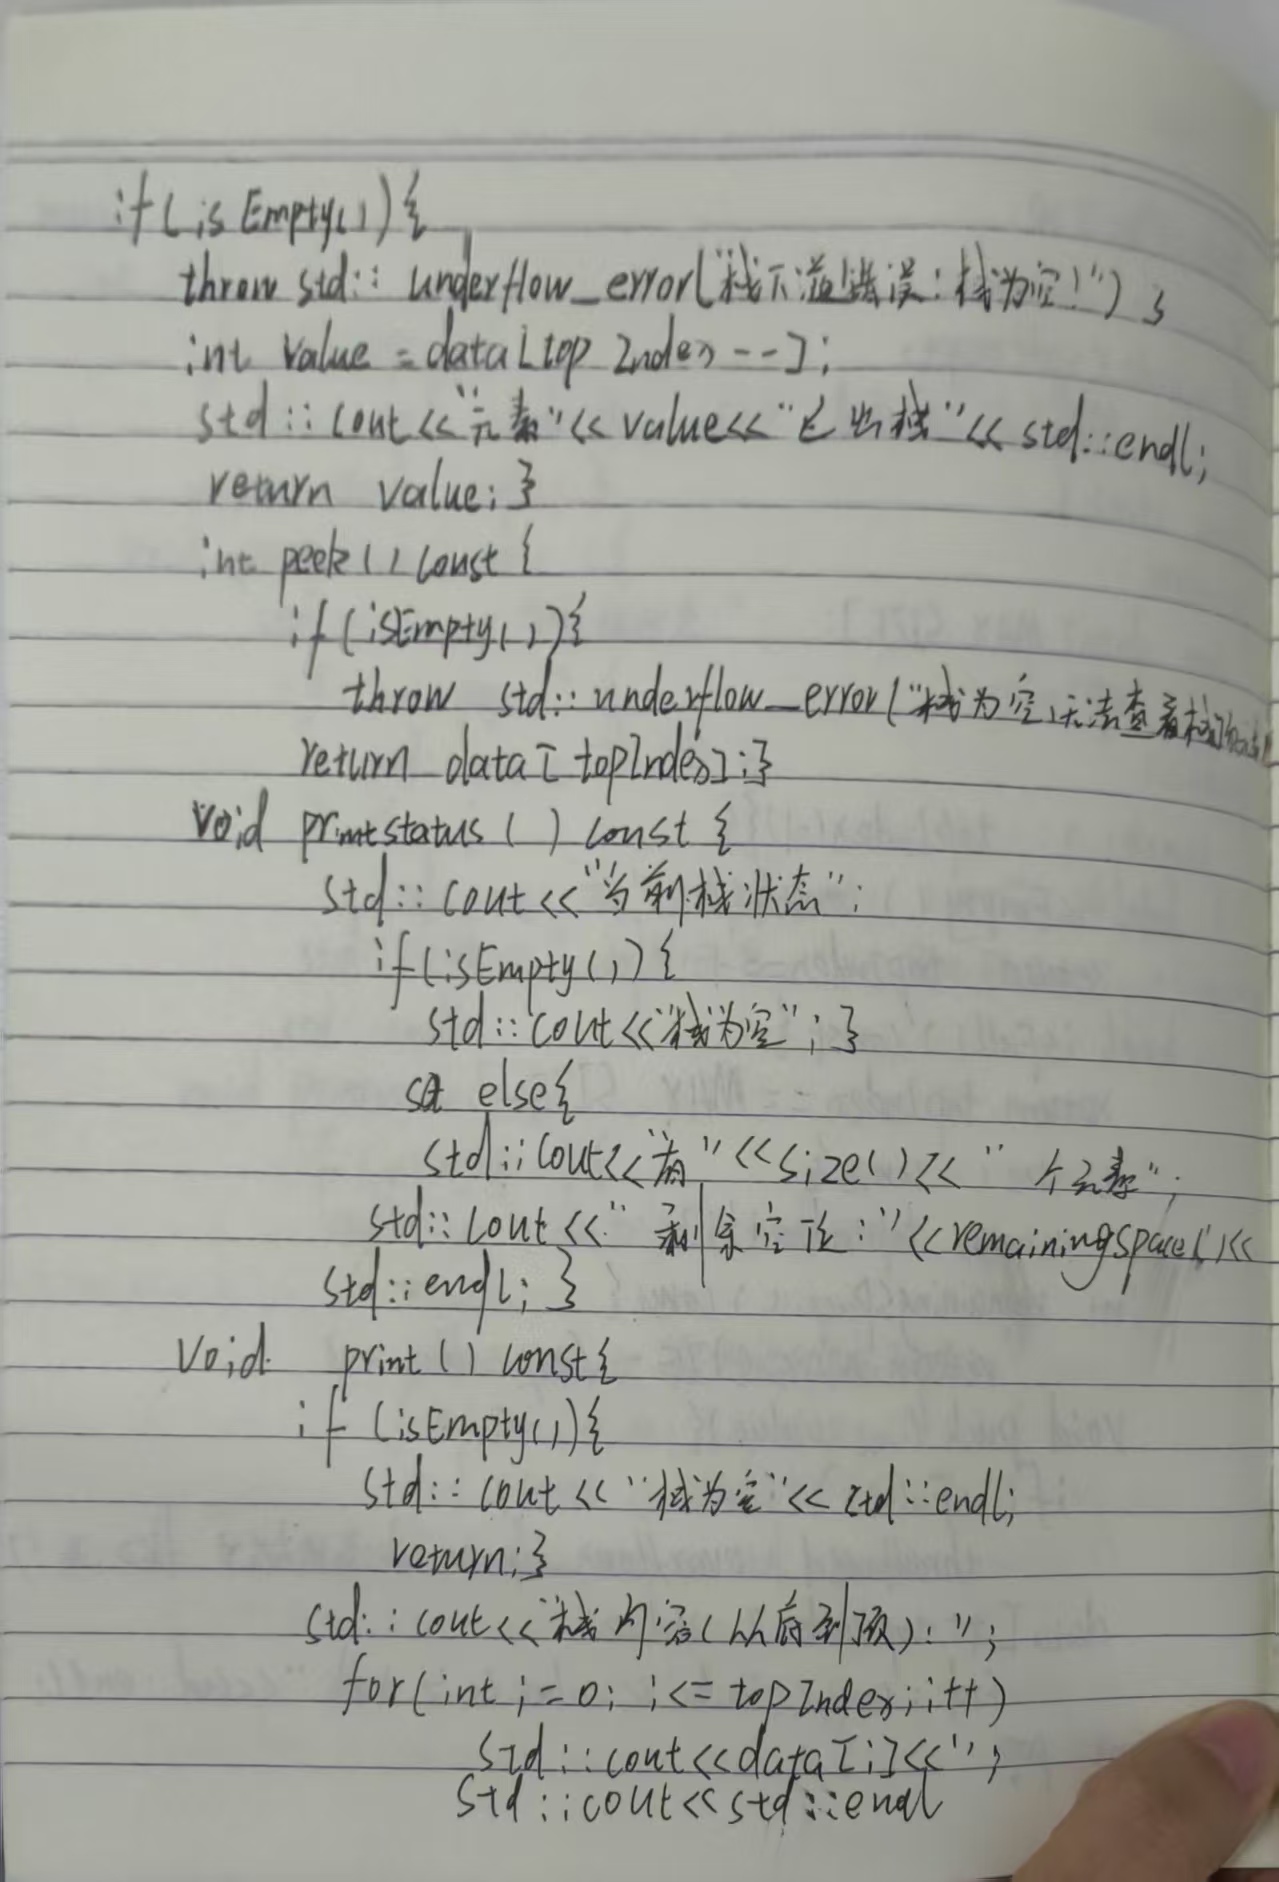 if(isEmpty()){
throw std::underflow_error("栈下溢错误:栈为空!");
int value=data[topIndex--];
std::cout<<"元素"<<value<<"已出栈"<<std::endl;
return value;}
int peek()const{
if(isEmpty()){
throw std::underflow_error("栈为空,无法查看栈顶
return data[topIndex];}
void printstatus()const{
std::cout<<"当前栈状态";
if(isEmpty()){
std::cout<<"栈为空";}
else{
std::cout<<"有"<<size()<<"个元素";
std::cout<<"剩余空位:"<<remainingspace()<<
std::endl;}
void print()const{
if(isEmpty()){
std::cout<<"栈为空"<<std::endl;
return;}
std::cout<<"栈内容(从底到顶):";
for(int i=0;i<=topIndex;i++)
std::cout<<data[i]<<"";
std::cout<<std::endl